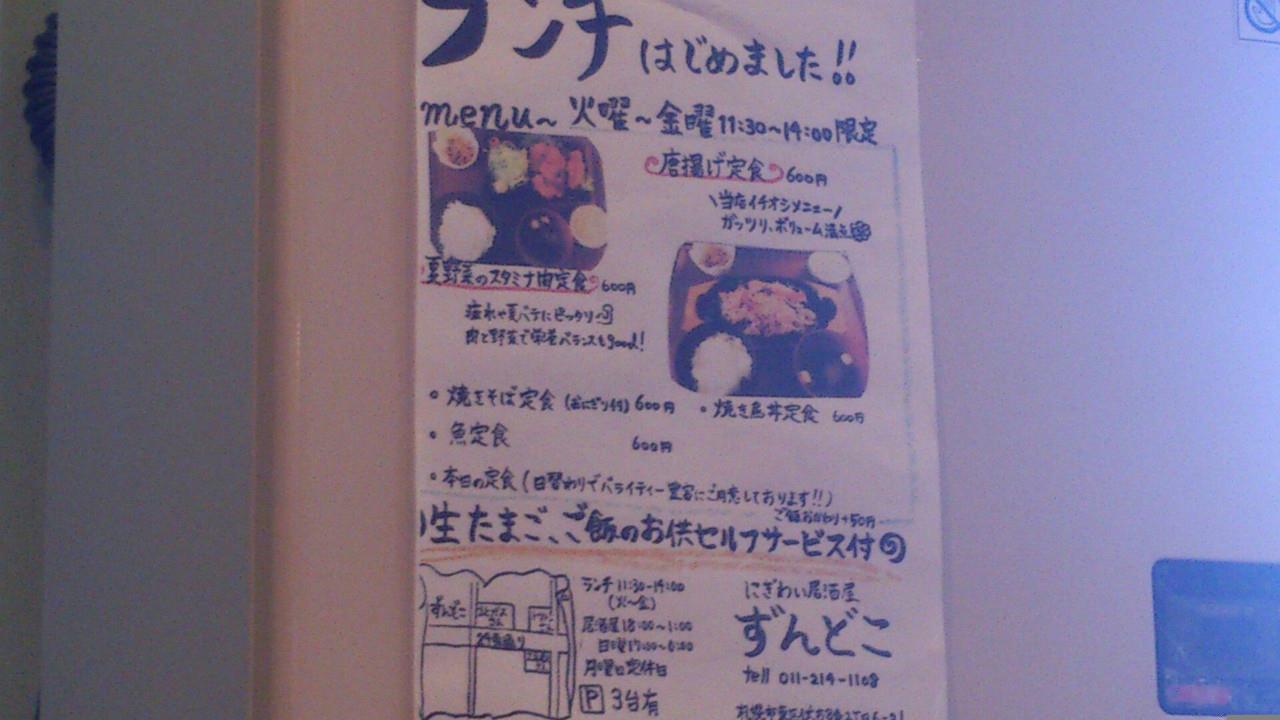 ランチ はじめました!!
menu~ 火曜~金曜 11:30~14:00 限定
唐揚げ定食 600円
\当店イチオシメニュー/
ガッツリ、ボリューム満点
夏野菜のスタミナ肉定食 600円
疲れや夏バテにピッタリ
肉と野菜で栄養バランスもgood!
• 焼きそば定食 (おにぎり付) 600円
• 焼き鳥丼定食 600円
• 魚定食 600円
• 本日の定食 (日替わりでバライティー豊富にご用意しております!!)
ご飯おかわり+50円
生たまご、ご飯のお供セルフサービス付
ずんどこ
ランチ 11:30-14:00
(火~金)
居酒屋 18:00~1:00
日曜 17:00~0:00
月曜日定休日
P 3台有
にぎわい居酒屋
ずんどこ
tell 011-214-1108